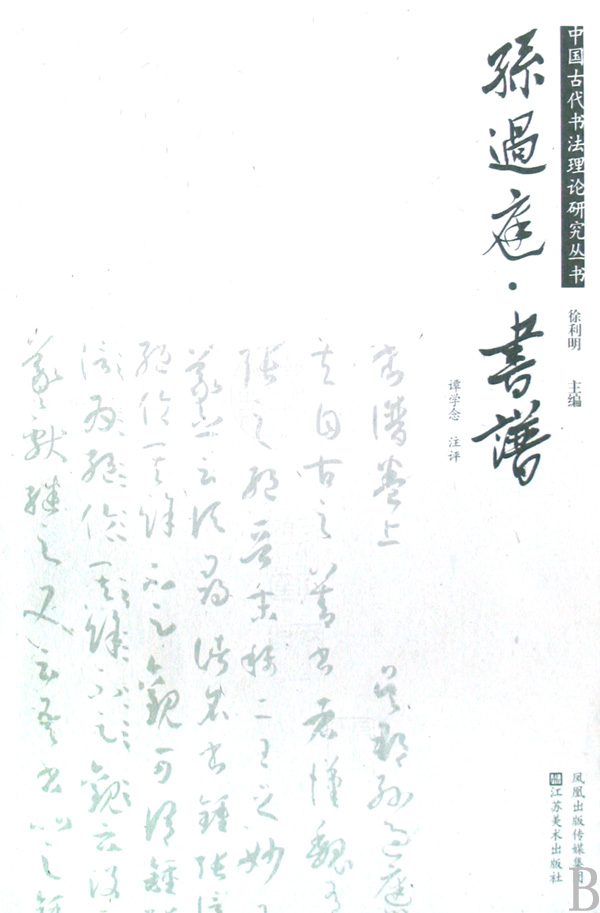 中国古代书法理论研究丛书
孫過庭·書譜
徐利明 主编
谭学念 注评
書譜卷上 吳郡孫過庭
夫自古之善書者漢魏有
張之絕晉末稱二王之妙王
羲之云頃尋諸名書鍾張信
絕倫其餘不足觀可謂鍾
羲獻繼之又云吾書比之鍾
凤凰出版传媒集团
江苏美术出版社
B